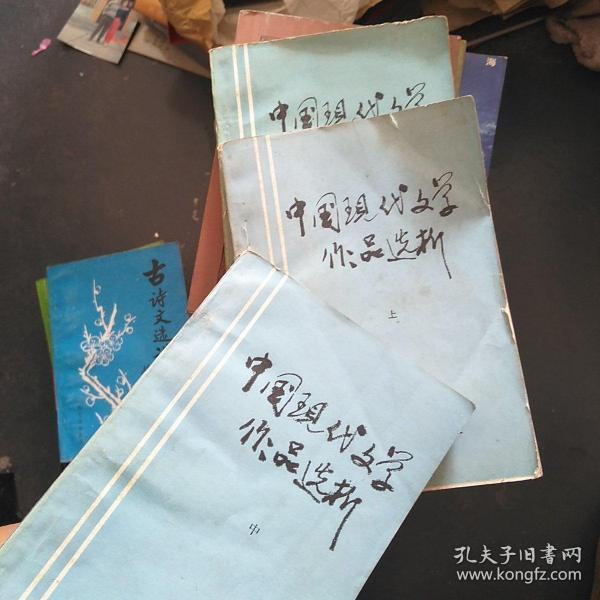 海
中国現代文学
中国現代文学
作品选析
上
古诗文选
中国現代文学
作品选析
中
孔夫子旧书网
www.kongfz.com